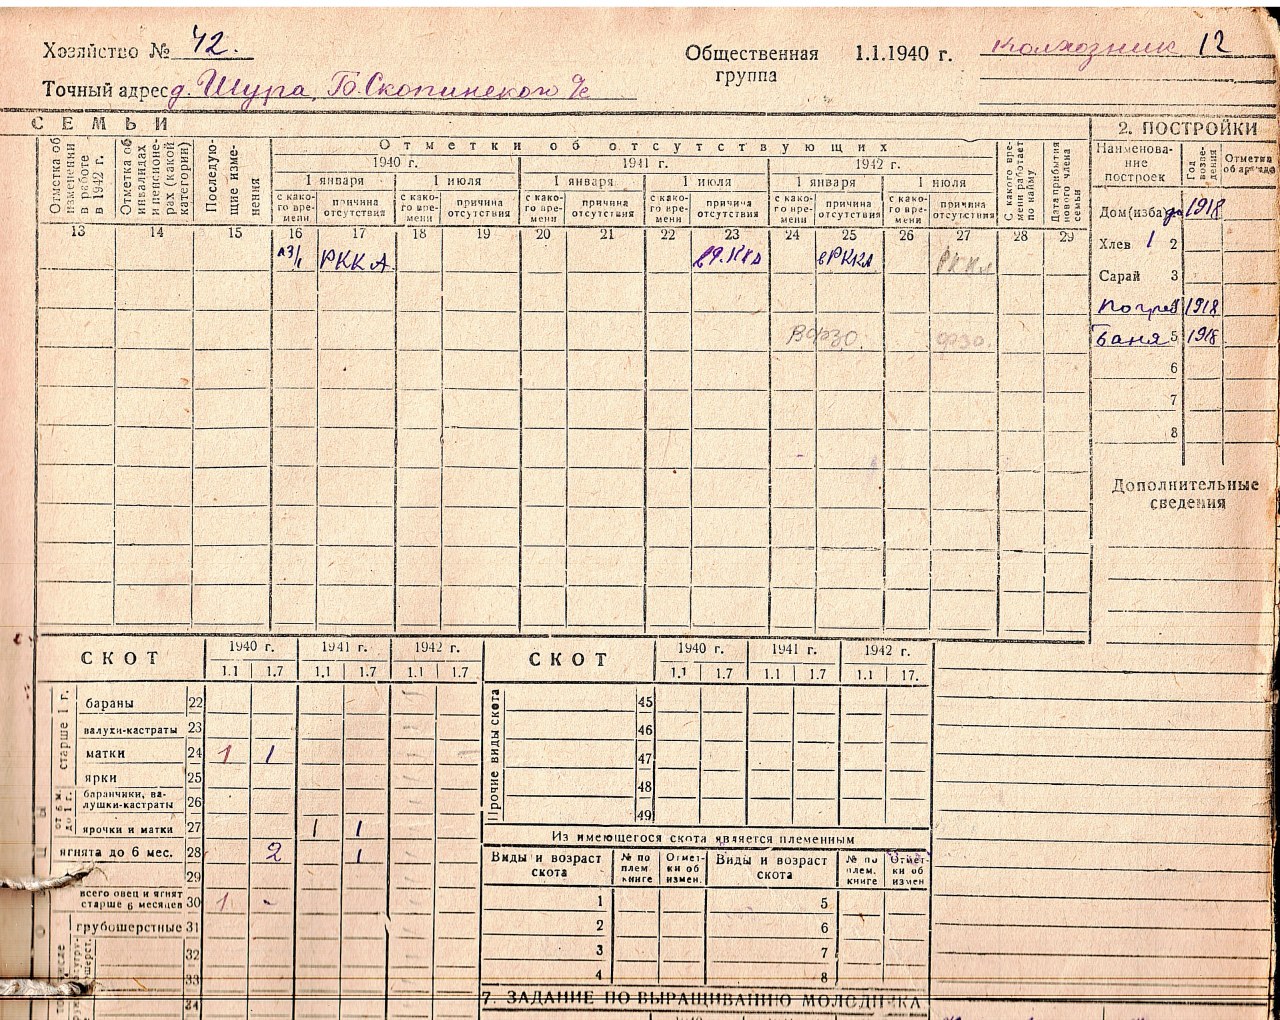 Хозяйство № 42.
Общественная группа 1.1.1940 г. колхозник 12
Точный адрес д. Шура, Б. Скопинского
СЕМЬИ
2. ПОСТРОЙКИ
Отметка об изменении в работе в 1942 г.
Отметка об инвалидах и пенсионерах (какой категории)
Последующие изменения
Отметки об отсутствующих
1940 г. 1941 г. 1942 г.
1 января 1 июля 1 января 1 июля 1 января 1 июля
с како-го вре-мени причина отсутствия с како-го вре-мени причина отсутствия с како-го вре-мени причина отсутствия с како-го вре-мени причина отсутствия с како-го вре-мени причина отсутствия с како-го вре-мени причина отсутствия
С какого вре-мени работает по найму
Дата прибытия нового члена семьи
Наименова-ние построек
Год возве-дения
Отметка об
13 14 15 16 17 18 19 20 21 22 23 24 25 26 27 28 29
РККА вРККА РККА
ВФЗО ФЗО.
Дом (изба) 1918
Хлев 1 2
Сарай 3
Погреб 1918
Баня 5 1918
6
7
8
Дополнительные
сведения
СКОТ 1940 г. 1941 г. 1942 г.
1.1 1.7 1.1 1.7 1.1 1.7
старше 1 г.
бараны 22
валухи-кастраты 23
матки 24 1 1
ярки 25
от 6 м. до 1 г.
баранчики, ва-лушки-кастраты 26
ярочки и матки 27 1 1
ягнята до 6 мес. 28 2 1
29
всего овец и ягнят старше 6 месяцев 30 1 -
грубошерстные 31
32
33
34
СКОТ 1940 г. 1941 г. 1942 г.
1.1 1.7 1.1 1.7 1.1 17.
Прочие виды скота
45
46
47
48
49
Из имеющегося скота является племенным
Виды и возраст скота № по плем. книге Отмет-ки об измен. Виды и возраст скота № по плем. книге Отмет-ки об измен
1 5
2 6
3 7
4 8
7. ЗАДАНИЕ ПО ВЫРАЩИВАНИЮ МОЛОДНЯКА